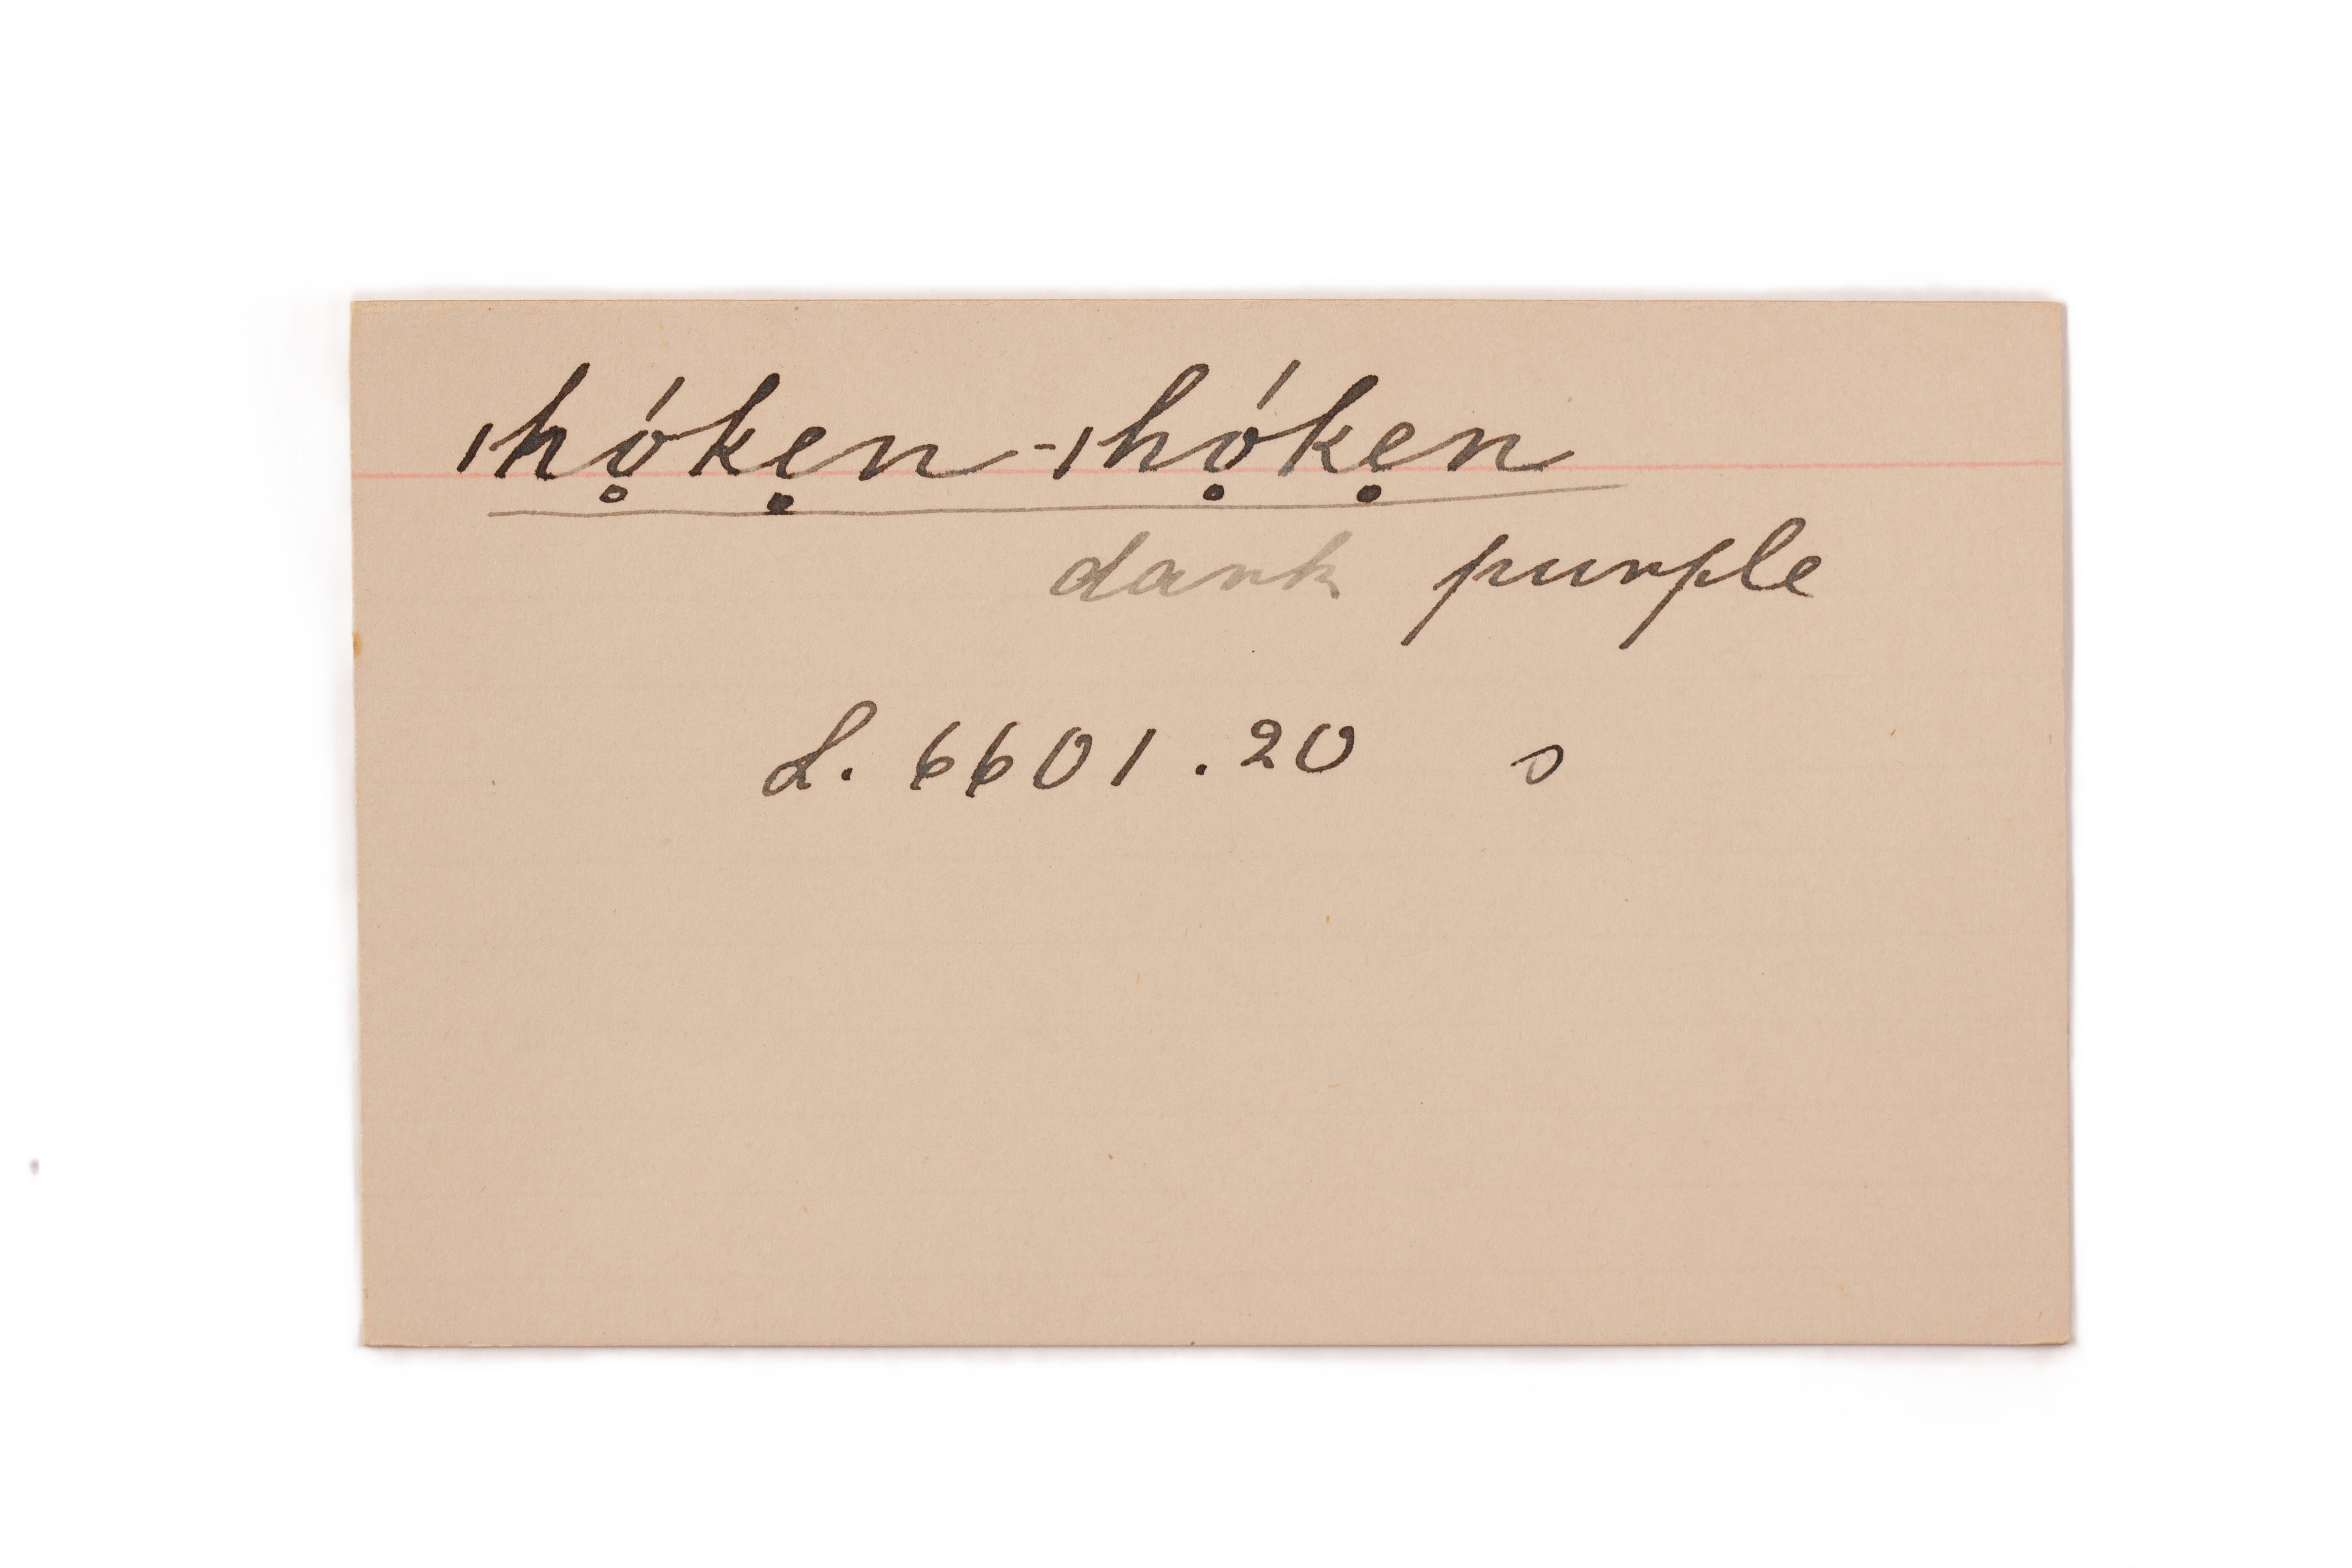 ıhọ́kẹn-ıhọ́kẹn
dark purple
L. 6601.20 s